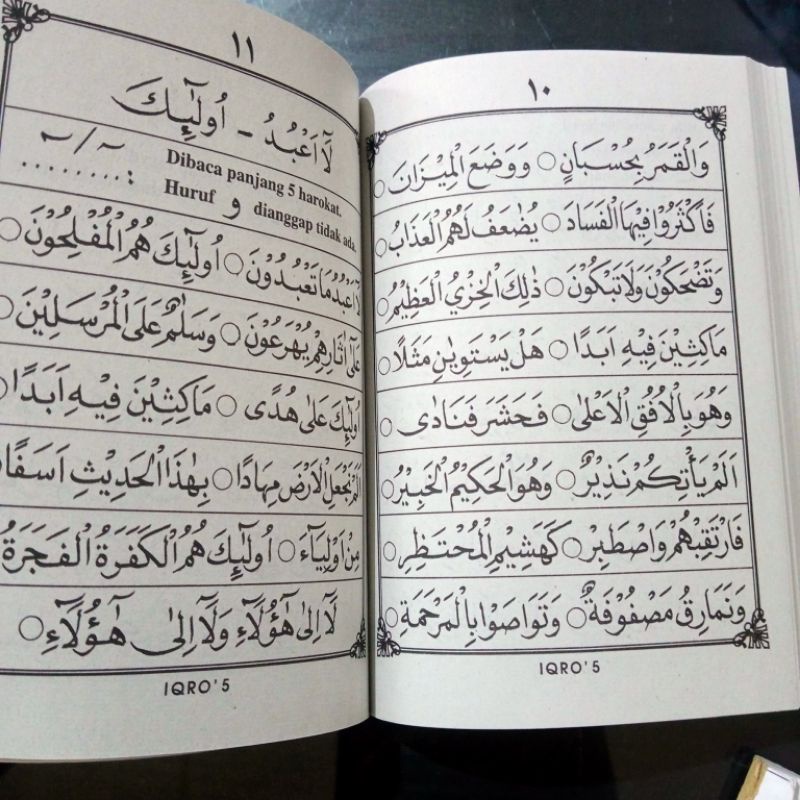 ١٠
وَالْقَمَرُ بِحُسْبَانٍ ○ وَوَضَعَ الْمِيْزَانَ ○
فَاَكْثَرُوْا فِيْهَا الْفَسَادَ ○ يُضٰعَفُ لَهُمُ الْعَذَابُ ○
وَتَضْحَكُوْنَ وَلَا تَبْكُوْنَ ○ ذٰلِكَ الْخِزْيُ الْعَظِيْمُ ○
مَاكِثِيْنَ فِيْهِ اَبَدًا ○ هَلْ يَسْتَوِيٰنِ مَثَلًا ○
وَهُوَ بِالْاُفُقِ الْاَعْلٰى ○ فَحَشَرَ فَنَادٰى ○
اَلَمْ يَأْتِكُمْ نَذِيْرٌ ○ وَهُوَ الْحَكِيْمُ الْخَبِيْرُ ○
فَارْتَقِبْهُمْ وَاصْطَبِرْ ○ كَهَشِيْمِ الْمُحْتَظِرِ ○
وَنَمَارِقُ مَصْفُوْفَةٌ ○ وَتَوَاصَوْا بِالْمَرْحَمَةِ ○
IQRO' 5
١١
لَآ اَعْبُدُ - اُولٰٓئِكَ
Dibaca panjang 5 harokat.
Huruf و dianggap tidak ada.
لَآ اَعْبُدُ مَا تَعْبُدُوْنَ ○ اُولٰٓئِكَ هُمُ الْمُفْلِحُوْنَ ○
عَلٰٓى اٰثَارِهِمْ يُهْرَعُوْنَ ○ وَسَلٰمٌ عَلَى الْمُرْسَلِيْنَ ○
اُولٰٓئِكَ عَلٰى هُدًى ○ مَاكِثِيْنَ فِيْهِ اَبَدًا ○
اَلَمْ نَجْعَلِ الْاَرْضَ مِهَادًا ○ بِهٰذَا الْحَدِيْثِ اَسَفًا
مِنْ اَوْلِيَآءَ ○ اُولٰٓئِكَ هُمُ الْكَفَرَةُ الْفَجَرَةُ
لَآ اِلٰى هٰٓؤُلَآءِ وَلَآ اِلٰى هٰٓؤُلَآءِ ○
IQRO' 5